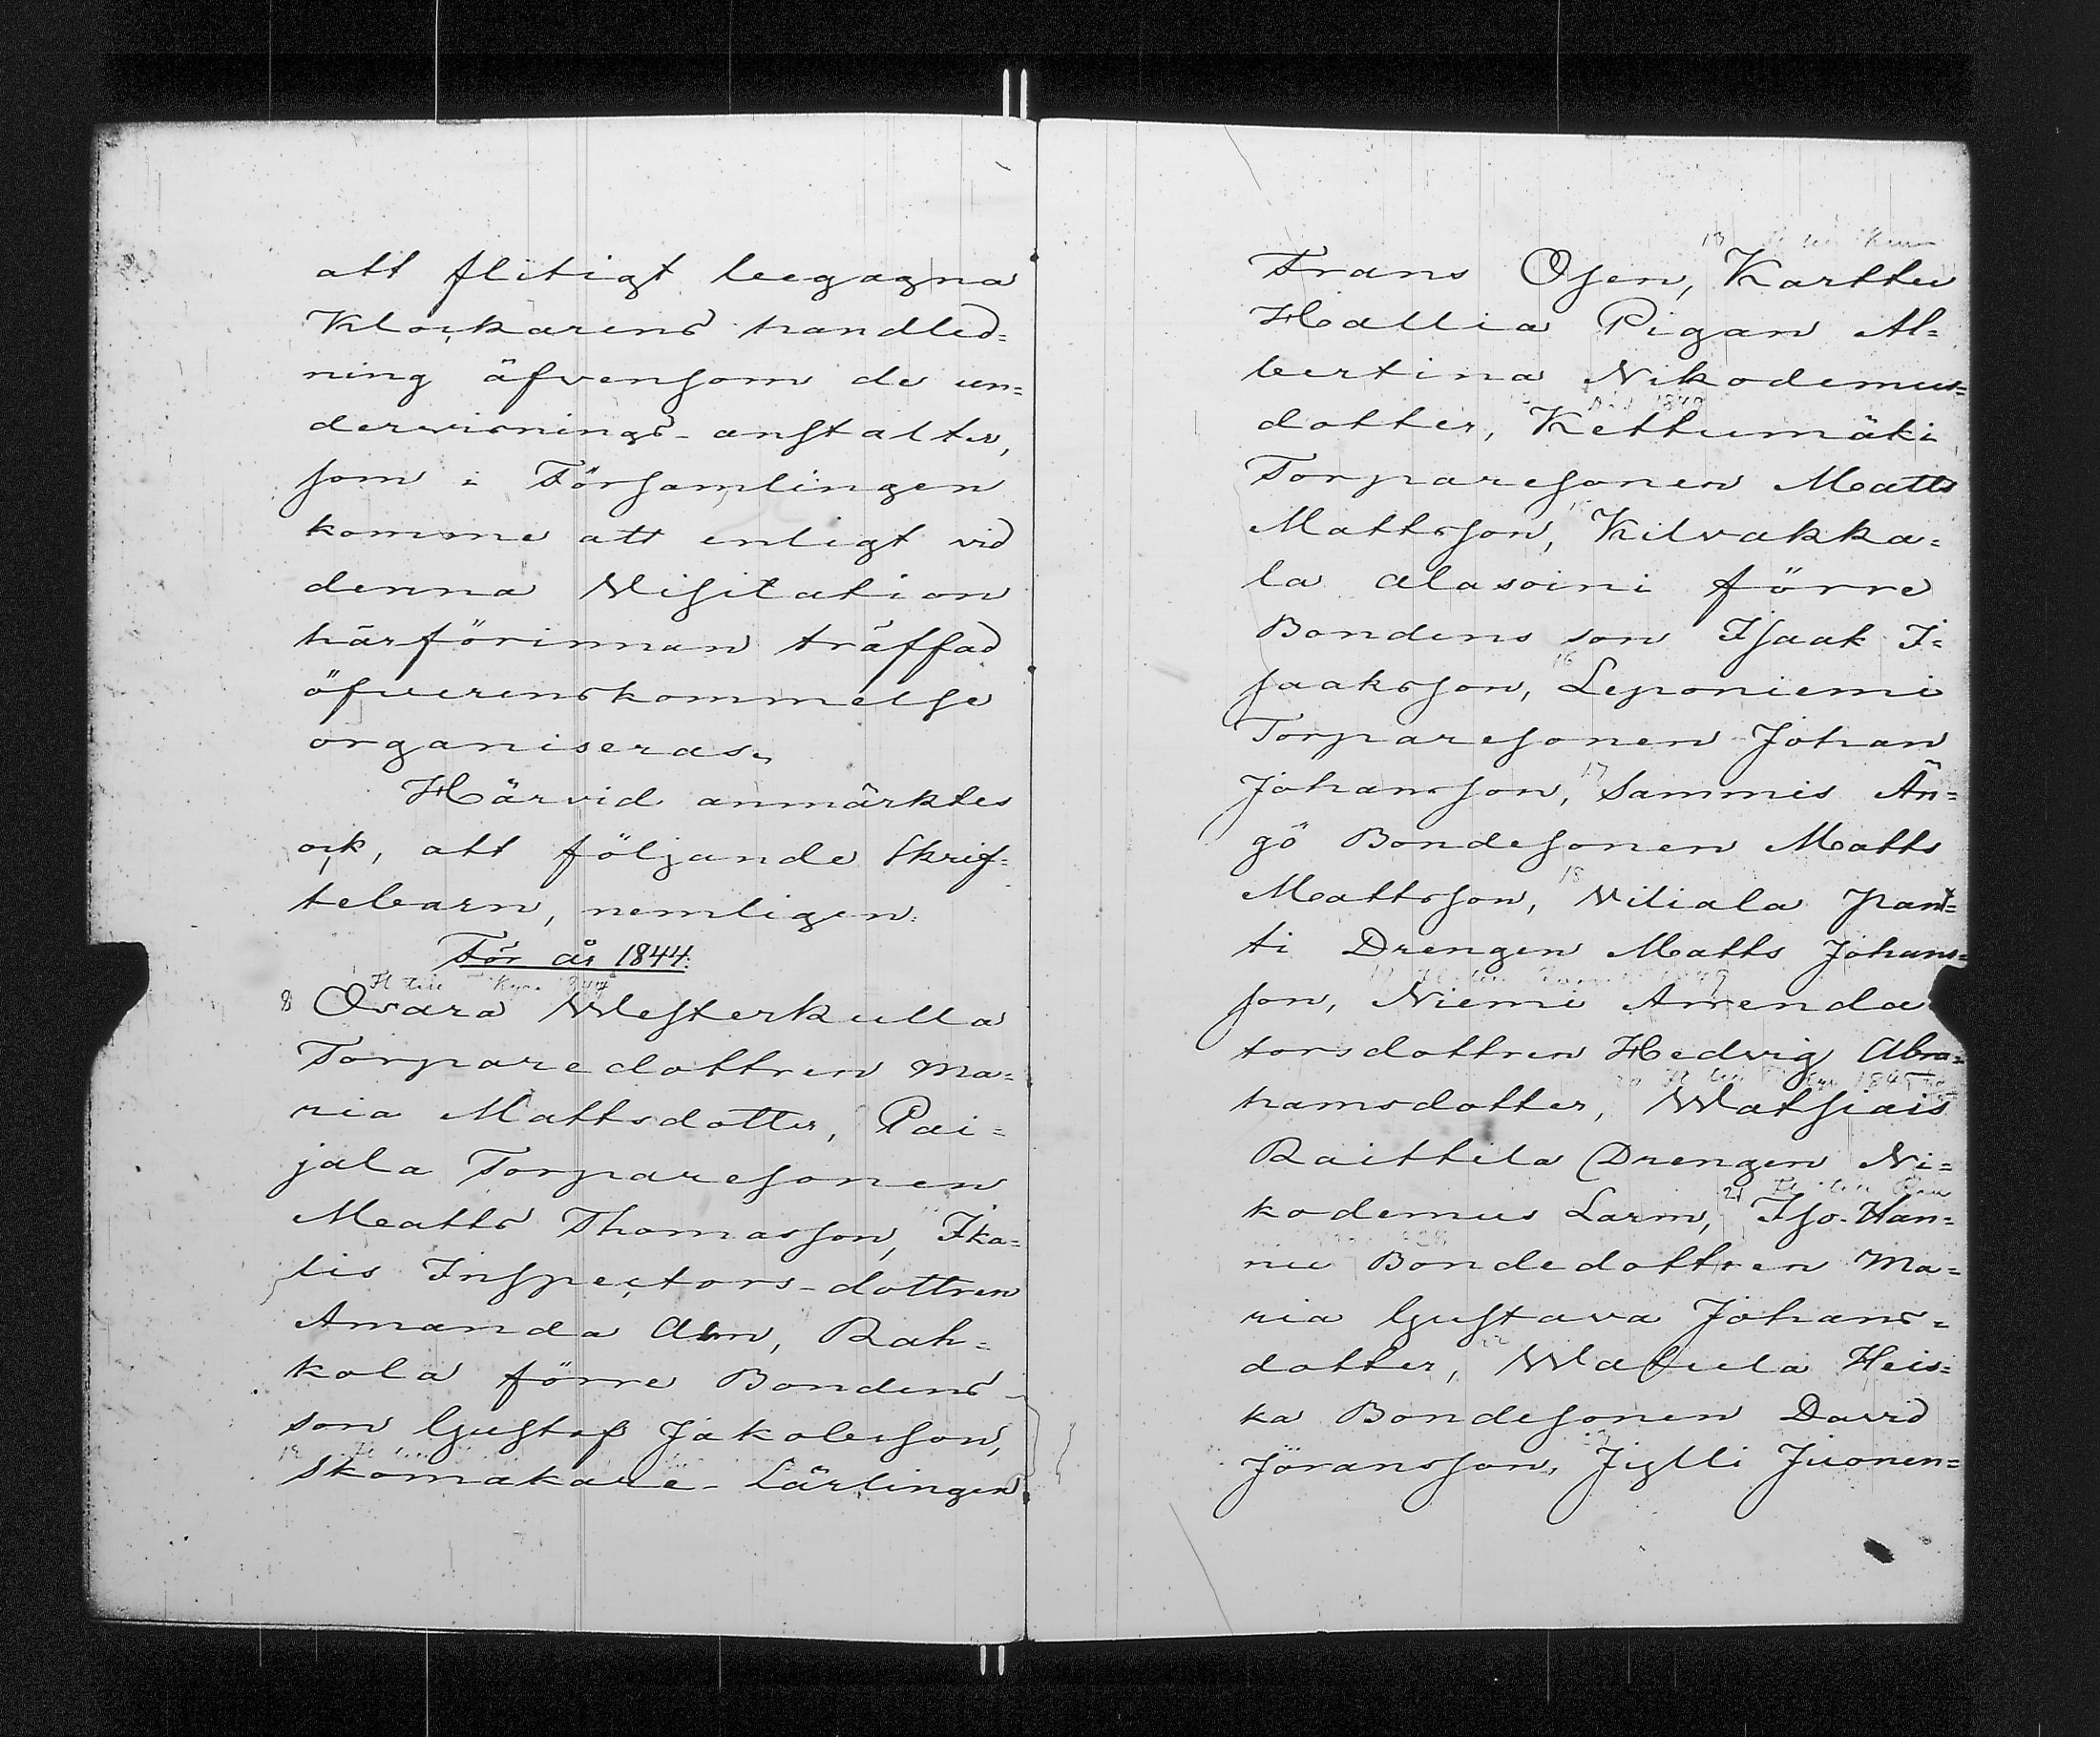 att flitigt begagna
Klockarens handled=
ning äfvensom de un=
dervisnings-anstalter,
som i Församlingen
komme att enligt vid
denna Visitation
härförinnan träffad
öfverenskommelse
organiseras.
Härvid anmärktes
ock, att följande Skrif=
tebarn, nemligen:
För år 1844:
8 Osara Westerkulla
Torparedottren Ma=
ria Mattsdotter, Pai=
jala Torparesonen
Matts Thomasson, Ika=
lis Inspectors-dottren
Amanda Alm, Rah=
kola förre Bondens
son Gustaf Jakobsson,
Skomakare-Lärlingen
13
Frans Osen, Karttu
Hallia Pigan Al=
bertina Nikodemus=
1849
dotter, Kettumäki
Torparesonen Matts
Mattsson, Kilvakka=
la Alasoini förre
Bondens son Isaak I=
16
saaksson, Leponiemi
Torparesonen Johan
17
Johansson, Sammis Än=
gö Bondesonen Matts
18
Mattsson, Viliala Pant=
ti Drengen Matts Johans=
son, Niemi Arrenda
torsdottren Hedvig Abra=
hamsdotter, Watsiais
Raittila Drengen Ni=
21
kodemus Larm, Iso-Han=
nu Bondedottren Ma=
ria Gustava Johans=
dotter, Watula Heis=
ka Bondesonen David
Jöransson, Jylli Juonen=